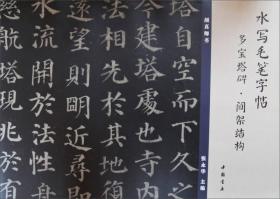 水写毛笔字帖
多宝塔碑·间架结构
中国书店
颜真卿书
张永华 主编
塔自空而下久之
今建塔處也寺内
遠望則明近尋即
水流開於法性舟
慈航塔現兆於